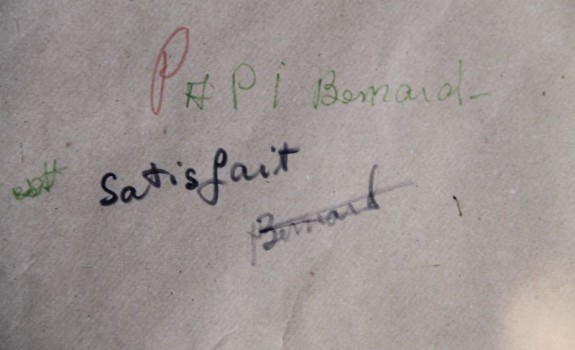 PAPI Bernard
est satisfait
Bernard